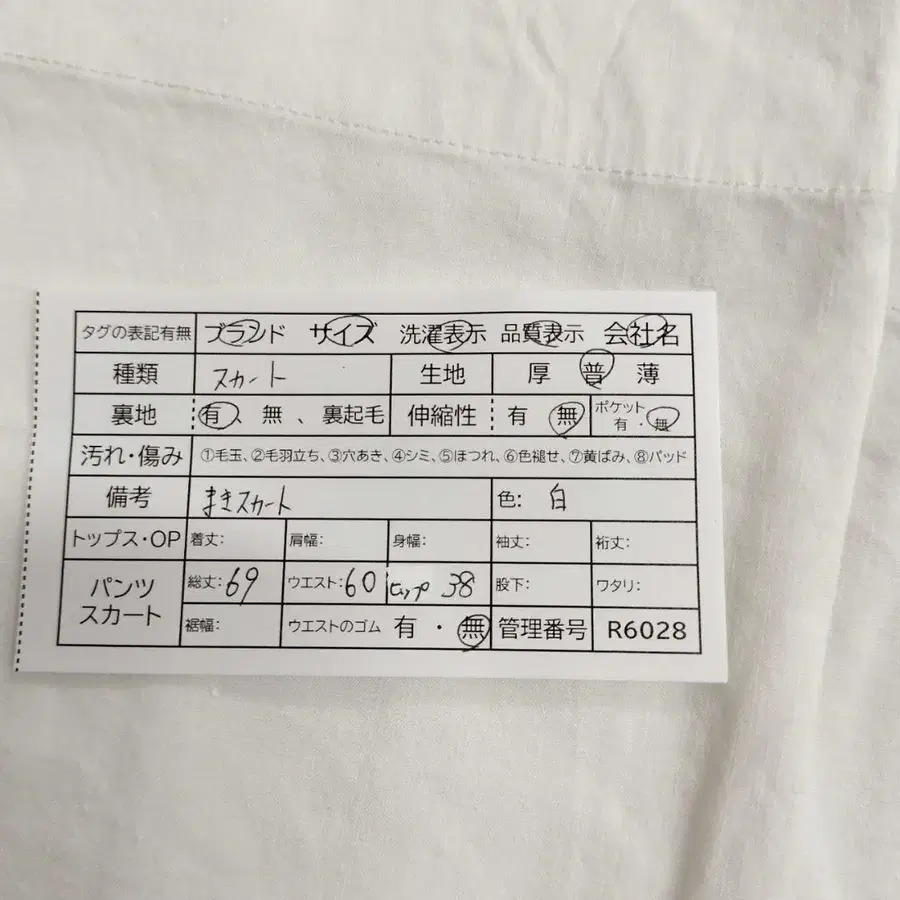 タグの表記有無 ブランド サイズ 洗濯表示 品質表示 会社名
種類 スカート 生地 厚 普 薄
裏地 有、無、裏起毛 伸縮性 有 無 ポケット 有・無
汚れ・傷み ①毛玉、②毛羽立ち、③穴あき、④シミ、⑤ほつれ、⑥色褪せ、⑦黄ばみ、⑧パッド
備考 まきスカート 色: 白
トップス・OP 着丈: 肩幅: 身幅: 袖丈: 裄丈:
パンツ スカート 総丈: 69 ウエスト: 60 ヒップ 38 股下: ワタリ:
裾幅: ウエストのゴム 有・無 管理番号 R6028